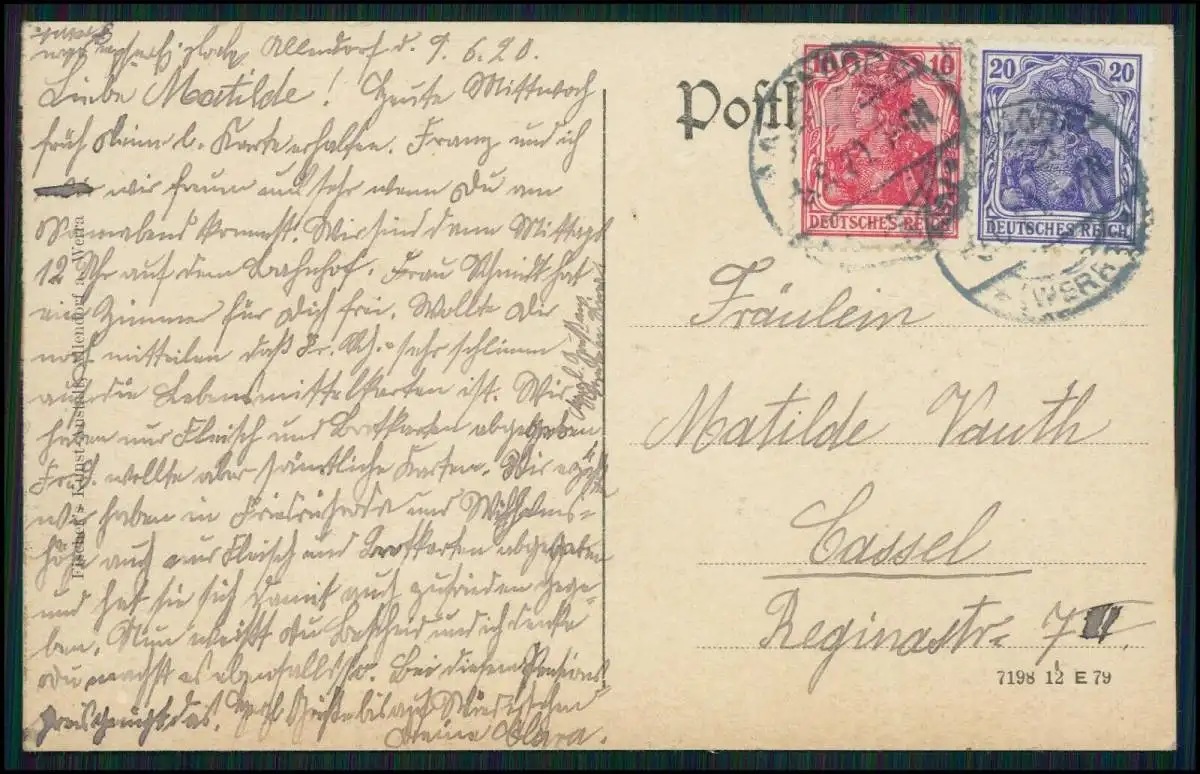 Allendorf d. 9.6.20.
Liebe Matilde! Heute Mittwoch
früh Deine l. Karte erhalten. Franz und ich
wir freuen uns sehr wenn Du am
Sonnabend kommst. Wir sind dann Mittags
12 Uhr auf dem Bahnhof. Frau Schmidt hat
ein Zimmer für Dich frei. Wollte Dir
noch mitteilen daß Fr. Sch. sehr schlimm
auf die Lebensmittelkarten ist. Wir
haben nur Fleisch und Brotkarten abgegeben
Fr. S. wollte aber sämtliche Karten. Wir
wir haben in Friedrichroda und Wilhelms-
höhe auch nur Fleisch und Brotkarten abgegeben
und hat sie sich damit auch zufrieden gege-
ben. Nun weißt du Bescheid und ich denke
Du machst es ebenfalls so. Bei diesem Pensions
preis genügt das. Grüße bis auf Wiedersehen
Deine Clara.
Fischer's Kunst-Anstalt, Allendorf a. Werra
Postk
10 10
DEUTSCHES REICH
20 20
DEUTSCHES REICH
(WERRA)
Fräulein
Matilde Vauth
Cassel
Reginastr= 7
7198 12 E 79